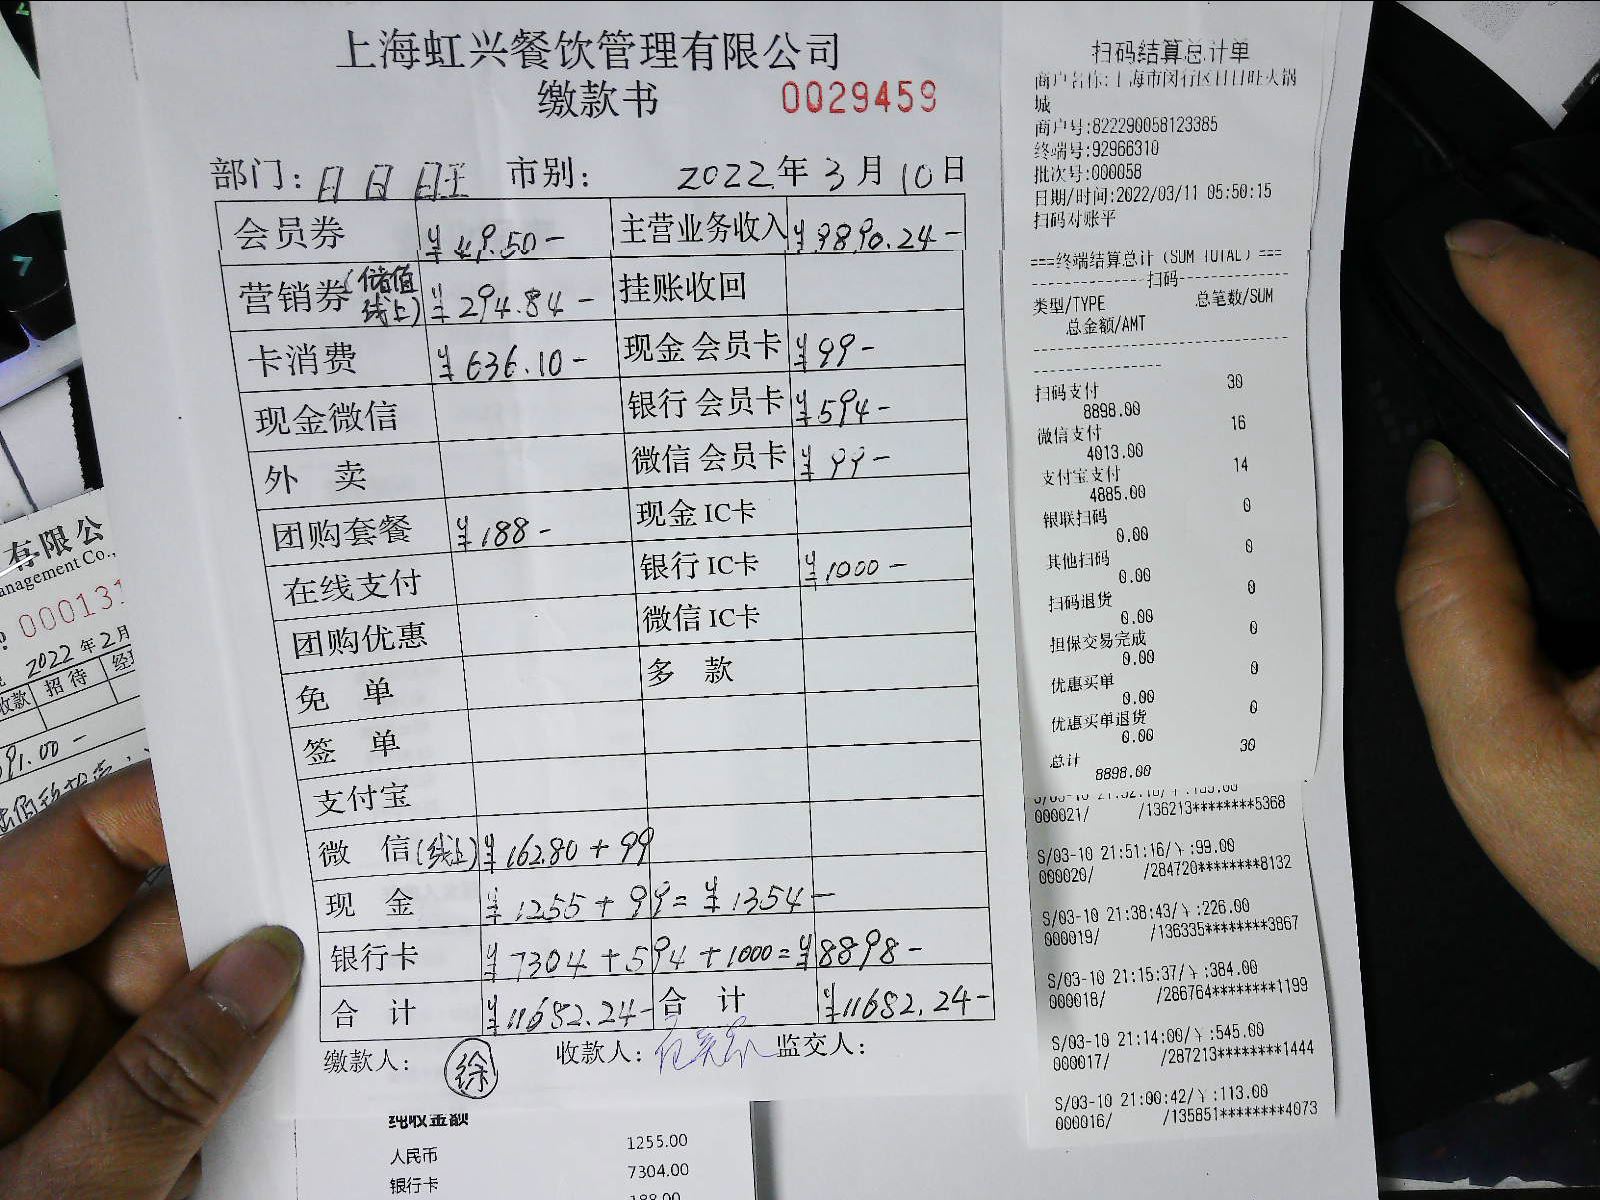 上海虹兴餐饮管理有限公司
缴款书 0029459
部门: 日日旺 市别: 2022年3月10日
会员券 ¥49.50- 主营业务收入 ¥9890.24-
营销券(储值线上) ¥294.84- 挂账收回
卡消费 ¥636.10- 现金会员卡 ¥99-
现金微信 银行会员卡 ¥594-
外卖 微信会员卡 ¥99-
团购套餐 ¥188- 现金IC卡
在线支付 银行IC卡 ¥1000-
团购优惠 微信IC卡
免单 多款
签单
支付宝
微信(线上) ¥162.80+99
现金 ¥1255+99=¥1354-
银行卡 ¥7304+594+1000=¥8898-
合计 ¥11682.24- 合计 ¥11682.24-
缴款人: 徐 收款人: 监交人:
纯收金额
人民币 1255.00
银行卡 7304.00
188.00
扫码结算总计单
商户名称:上海市闵行区日日旺火锅
城
商户号:822290058123385
终端号:92966310
批次号:000058
日期/时间:2022/03/11 05:50:15
扫码对账平
===终端结算总计(SUM TOTAL)===
----------------扫码----------------
类型/TYPE 总笔数/SUM
总金额/AMT
扫码支付 30
8898.00
微信支付 16
4013.00
支付宝支付 14
4885.00
银联扫码 0
0.00
其他扫码 0
0.00
扫码退货 0
0.00
担保交易完成 0
0.00
优惠买单 0
0.00
优惠买单退货 0
0.00
总计 30
8898.00
000021/ /136213********5368
S/03-10 21:51:16/¥:99.00
000020/ /284720********8132
S/03-10 21:38:43/¥:226.00
000019/ /136335********3867
S/03-10 21:15:37/¥:384.00
000018/ /286764********1199
S/03-10 21:14:00/¥:545.00
000017/ /287213********1444
S/03-10 21:00:42/¥:113.00
000016/ /135851********4073
有限公
anagement Co.,
000131
2022年2月
收款 招待 经
91.00-